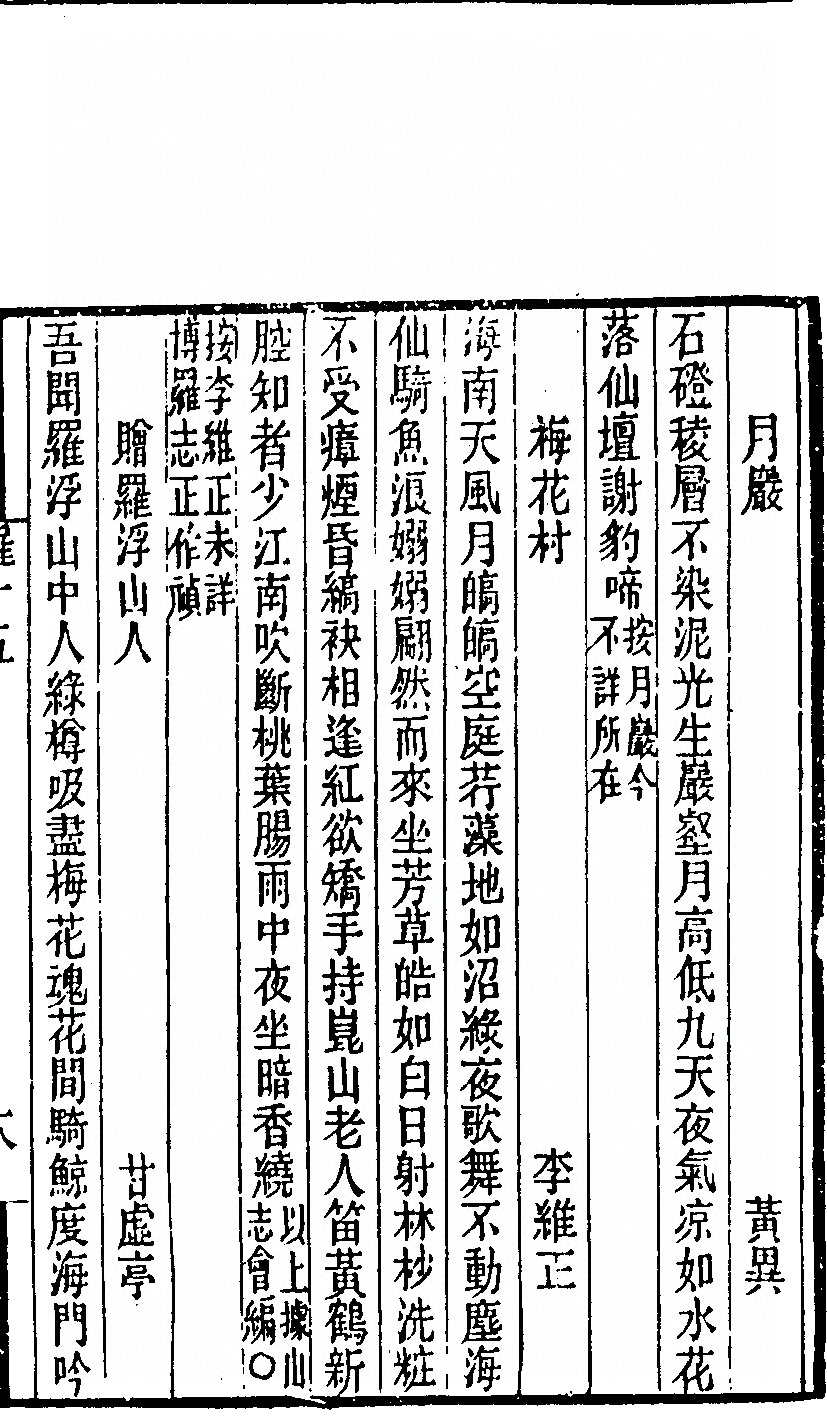 月巖　黃異
石磴稜層不染泥光生巖壑月高低九天夜氣凉如水花
落仙壇謝豹啼按月巖今
不詳所在
梅花村　李維正
海南天風月皜皜空庭荇藻地如沼綠夜歌舞不動塵海
仙騎魚浪嫋嫋翩然而來坐芳草皓如白日射林杪洗粧
不受瘴煙昏縞袂相逢紅欲矯手持崑山老人笛黃鶴新
腔知者少江南吹斷桃葉腸雨中夜坐暗香繞以上據山
志會編〇
按李維正未詳
博羅志正作禎
贈羅浮山人　甘虛亭
吾聞羅浮山中人綠樽吸盡梅花魂花間騎鯨度海門吟